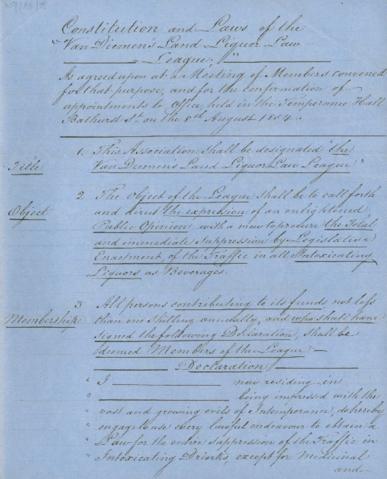 Constitution and Laws of the
"Van Diemen's Land Liquor Law
League,"
As agreed upon at a Meeting of Members convened
for that purpose, and for the confirmation of
appointments to Office, held in the Temperance Hall
Bathurst St. on the 8th August 1854.
1. This Association shall be designated "the
Title
Van Diemen's Land Liquor Law League"
2. The object of the League shall be to call forth
Object
and aid the expression of an enlightened
Public Opinion with a view to procure the Total
and immediate Suppression by Legislative
Enactment, of the Traffic in all Intoxicating
Liquors as Beverages.
3 All persons contributing to its funds not less
Membership
than one Shilling annually, and who shall have
signed the following Declaration, shall be
deemed Members of the League —
Declaration
" I now residing in
" being impressed with the
" vast and growing evils of Intemperance, do hereby
" engage to use every lawful endeavour to obtain a
" Law for the entire suppression of the Traffic in
" Intoxicating Drinks, except for Medicinal
and